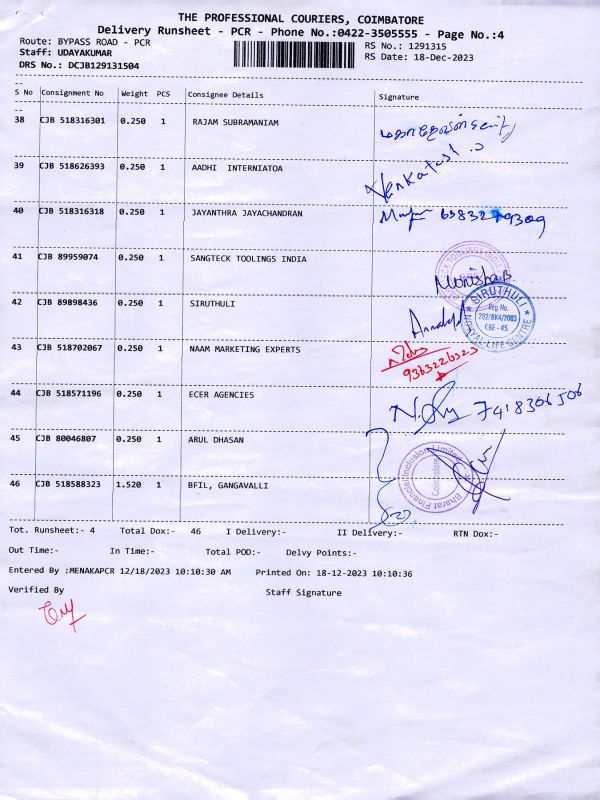 THE PROFESSIONAL COURIERS, COIMBATORE
Delivery Runsheet - PCR - Phone No.:0422-3505555 - Page No.:4
Route: BYPASS ROAD - PCR
RS No.: 1291315
Staff: UDAYAKUMAR
RS Date: 18-Dec-2023
DRS No.: DCJB129131504
S No Consignment No Weight PCS Consignee Details Signature
38 CJB 518316301 0.250 1 RAJAM SUBRAMANIAM
39 CJB 518626393 0.250 1 AADHI INTERNIATOA Venkatesh
40 CJB 518316318 0.250 1 JAYANTHRA JAYACHANDRAN 6383279309
41 CJB 89959074 0.250 1 SANGTECK TOOLINGS INDIA Monisha.B
42 CJB 89898436 0.250 1 SIRUTHULI
SIRUTHULI
Reg No.
282/BK4/2003
CBE - 45.
43 CJB 518702067 0.250 1 NAAM MARKETING EXPERTS
9363226323
44 CJB 518571196 0.250 1 ECER AGENCIES 7418306506
45 CJB 80046807 0.250 1 ARUL DHASAN
Bharat Financial Inclusion Limited
Coimbatore
46 CJB 518588323 1.520 1 BFIL, GANGAVALLI
Tot. Runsheet:- 4 Total Dox:- 46 I Delivery:- II Delivery:- RTN Dox:-
Out Time:- In Time:- Total POD:- Delvy Points:-
Entered By :MENAKAPCR 12/18/2023 10:10:30 AM Printed On: 18-12-2023 10:10:36
Verified By Staff Signature